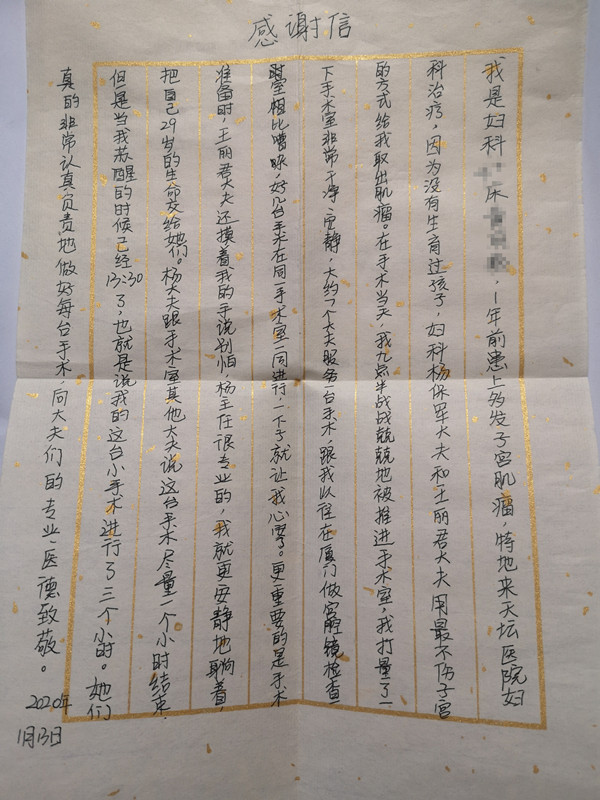 感谢信
我是妇科 床 ，1年前患上多发子宫肌瘤，特地来天坛医院妇
科治疗，因为没有生育过孩子，妇科杨保军大夫和王丽君大夫用最不伤子宫
的方式给我取出肌瘤。在手术当天，我九点半战战兢兢地被推进手术室，我打量了一
下手术室非常干净、安静，大约7个大夫服务一台手术，跟我以往在厦门做宫腔镜检查
时室相比嘈杂，好几台手术在同一手术室一同进行，一下子就让我心安了。更重要的是手术
准备时，王丽君大夫还摸着我的手说别怕，杨主任很专业的，我就更安静地躺着，
把自己29岁的生命交给她们。杨大夫跟手术室其他大夫说这台手术尽量一个小时结束，
但是当我苏醒的时候已经13:30了，也就是说我的这台小手术进行了三个小时。她们
真的非常认真负责地做好每台手术，向大夫们的专业、医德致敬。
2020年
1月13日